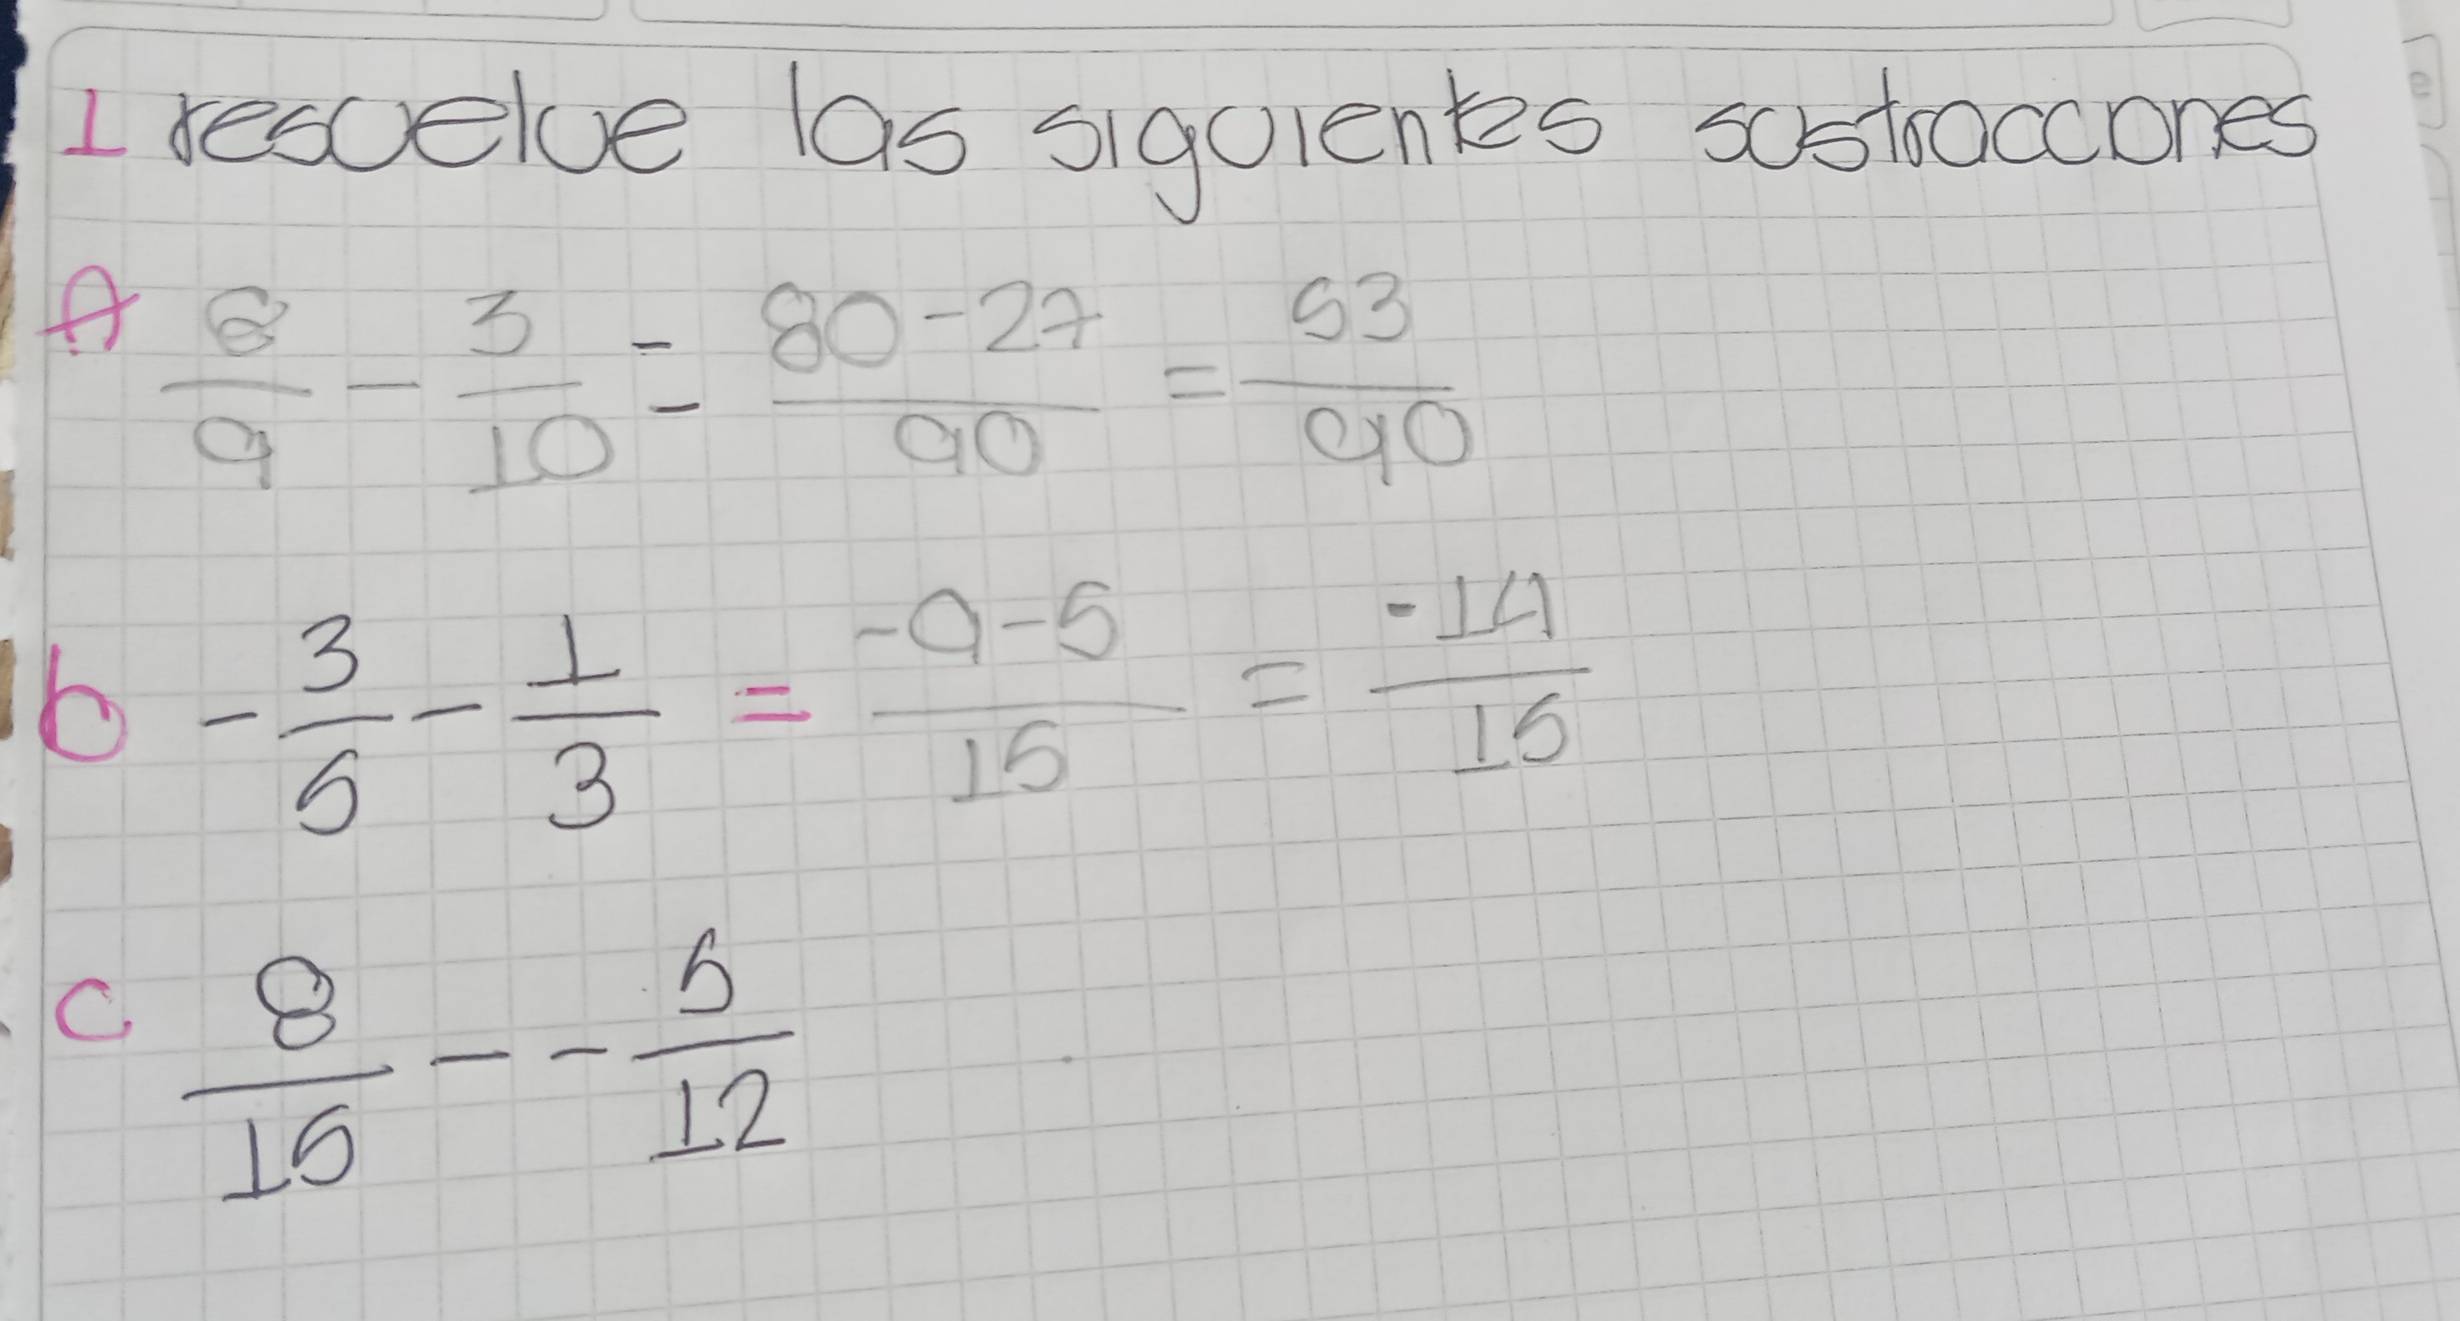 1 resuelve las siguientes sustraccones
A 8/9 - 3/10 = 80-27/90 = 53/90
b -3/5 - 1/3 = -9-5/15 = -14/15
c 8/15 - -5/12